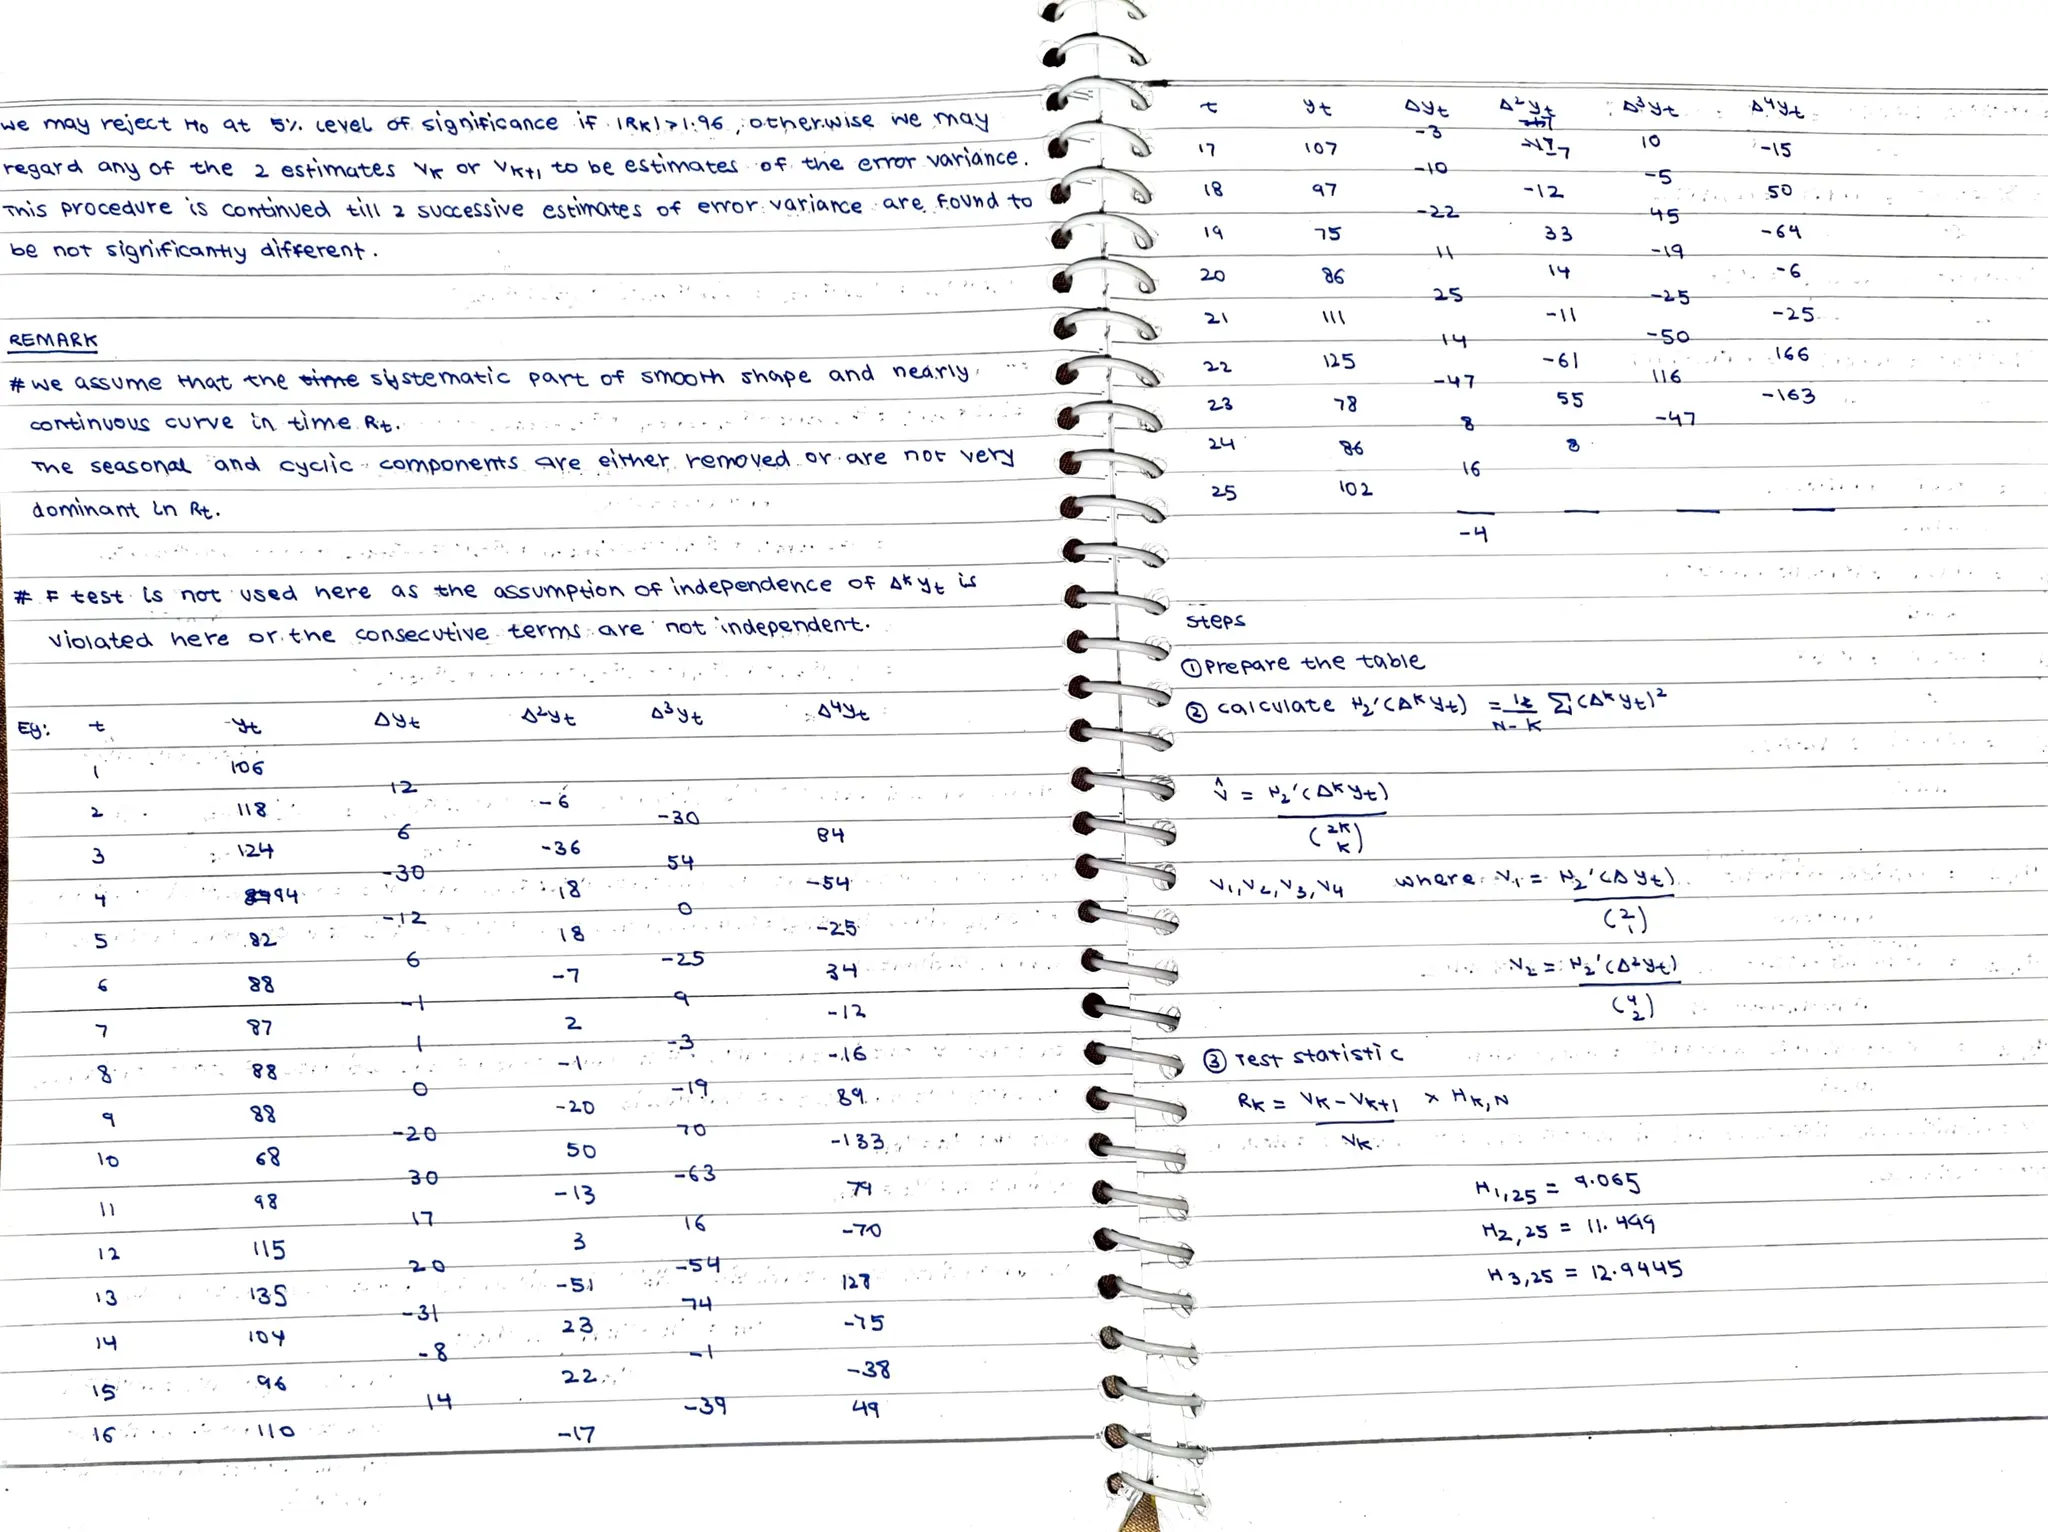 we may reject H₀ at 5% level of significance if |RK| > 1.96, otherwise we may
regard any of the 2 estimates VK or VK+1 to be estimates of the error variance.
This procedure is continued till 2 successive estimates of error variance are found to
be not significantly different.
REMARK
# we assume that the systematic part of smooth shape and nearly
continuous curve in time Rt.
The seasonal and cyclic components are either removed or are not very
dominant in Rt.
# F test is not used here as the assumption of independence of Δᵏyt is
violated here or the consecutive terms are not independent.
Eg: t yt Δyt Δ²yt Δ³yt Δ⁴yt
1 106
12
2 118 -6
6 -30
3 124 -36 84
-30 54
4 94 18 -54
-12 0
5 82 18 -25
6 -25
6 88 -7 34
-1 9
7 87 2 -12
1 -3
8 88 -1 -16
0 -19
9 88 -20 89
-20 70
10 68 50 -133
30 -63
11 98 -13 79
17 16
12 115 3 -70
20 -54
13 135 -51 128
-31 74
14 104 23 -75
-8 -1
15 96 22 -38
14 -39
16 110 -17 49
t yt Δyt Δ²yt Δ³yt Δ⁴yt
-3 10
17 107 -7 -15
-10 -5
18 97 -12 50
-22 45
19 75 33 -64
11 -19
20 86 14 -6
25 -25
21 111 -11 -25
14 -50
22 125 -61 166
-47 116
23 78 55 -163
8 -47
24 86 8
16
25 102
-4
steps
① Prepare the table
② calculate μ₂'(Δᵏyt) = 1/(N-K) Σ(Δᵏyt)²
V̂ = μ₂'(Δᵏyt) / (2K K)
V₁, V₂, V₃, V₄ where V₁ = μ₂'(Δyt) / (2 1)
V₂ = μ₂'(Δ²yt) / (4 2)
③ Test statistic
RK = (VK - VK+1) / VK × HK,N
H1,25 = 9.065
H2,25 = 11.499
H3,25 = 12.9445